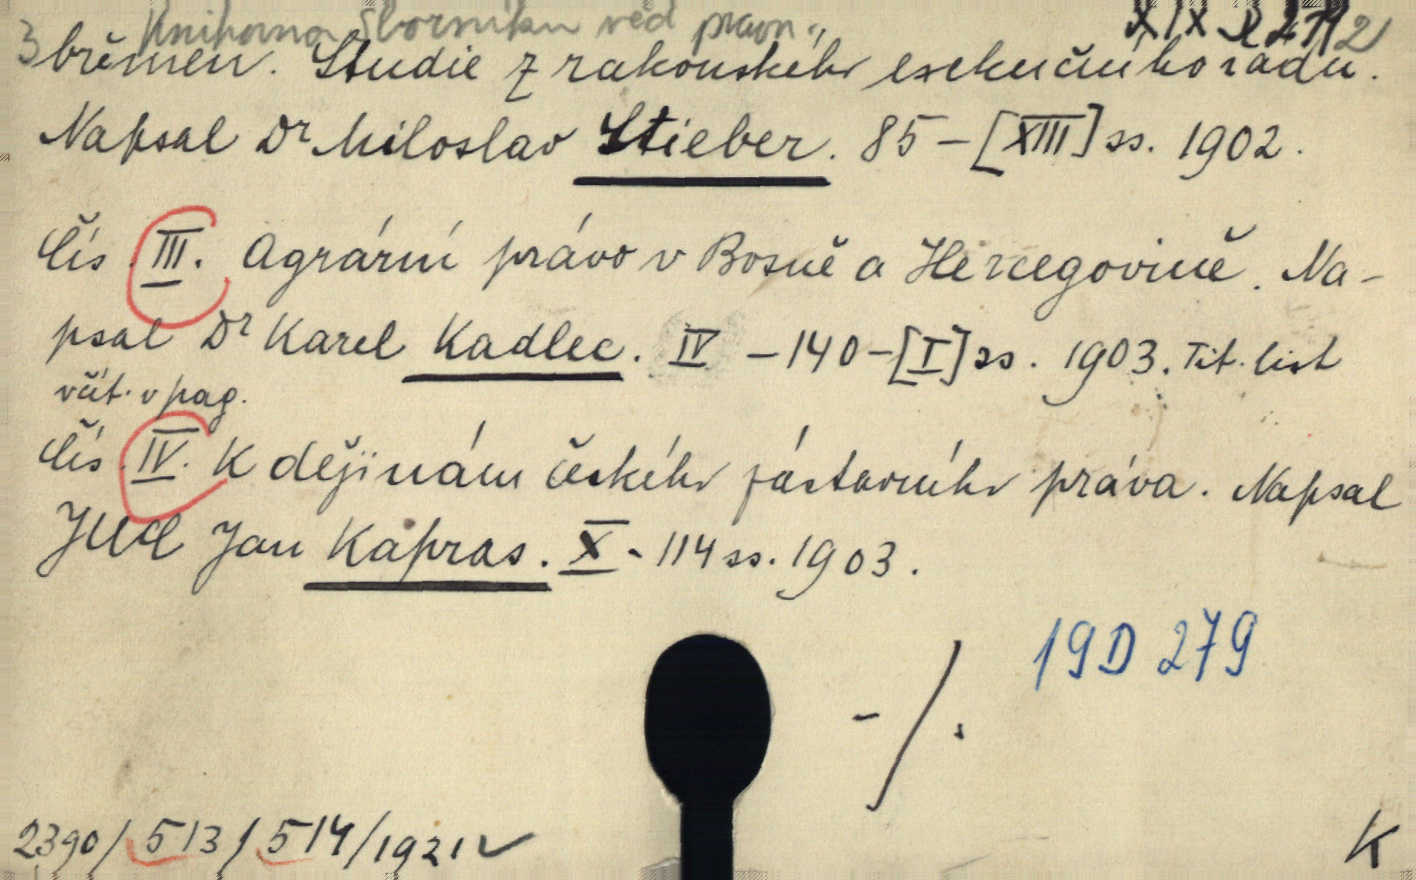 3 Knihovna Sborníku věd právn. XIX D 279 2
břemen. Studie z rakouského exekučního řádu.
Napsal Dr Miloslav Stieber. 85 – [XIII] ss. 1902.
Čís. III. Agrární právo v Bosně a Hercegovině. Na-
psal Dr Karel Kadlec. IV – 140 – [I] ss. 1903. Tit. list
včít. v pag.
Čís. IV. K dějinám českého zástavního práva. Napsal
JUD Jan Kapras. X - 114 ss. 1903.
19 D 279
-/.
2390/513/514/1921
K